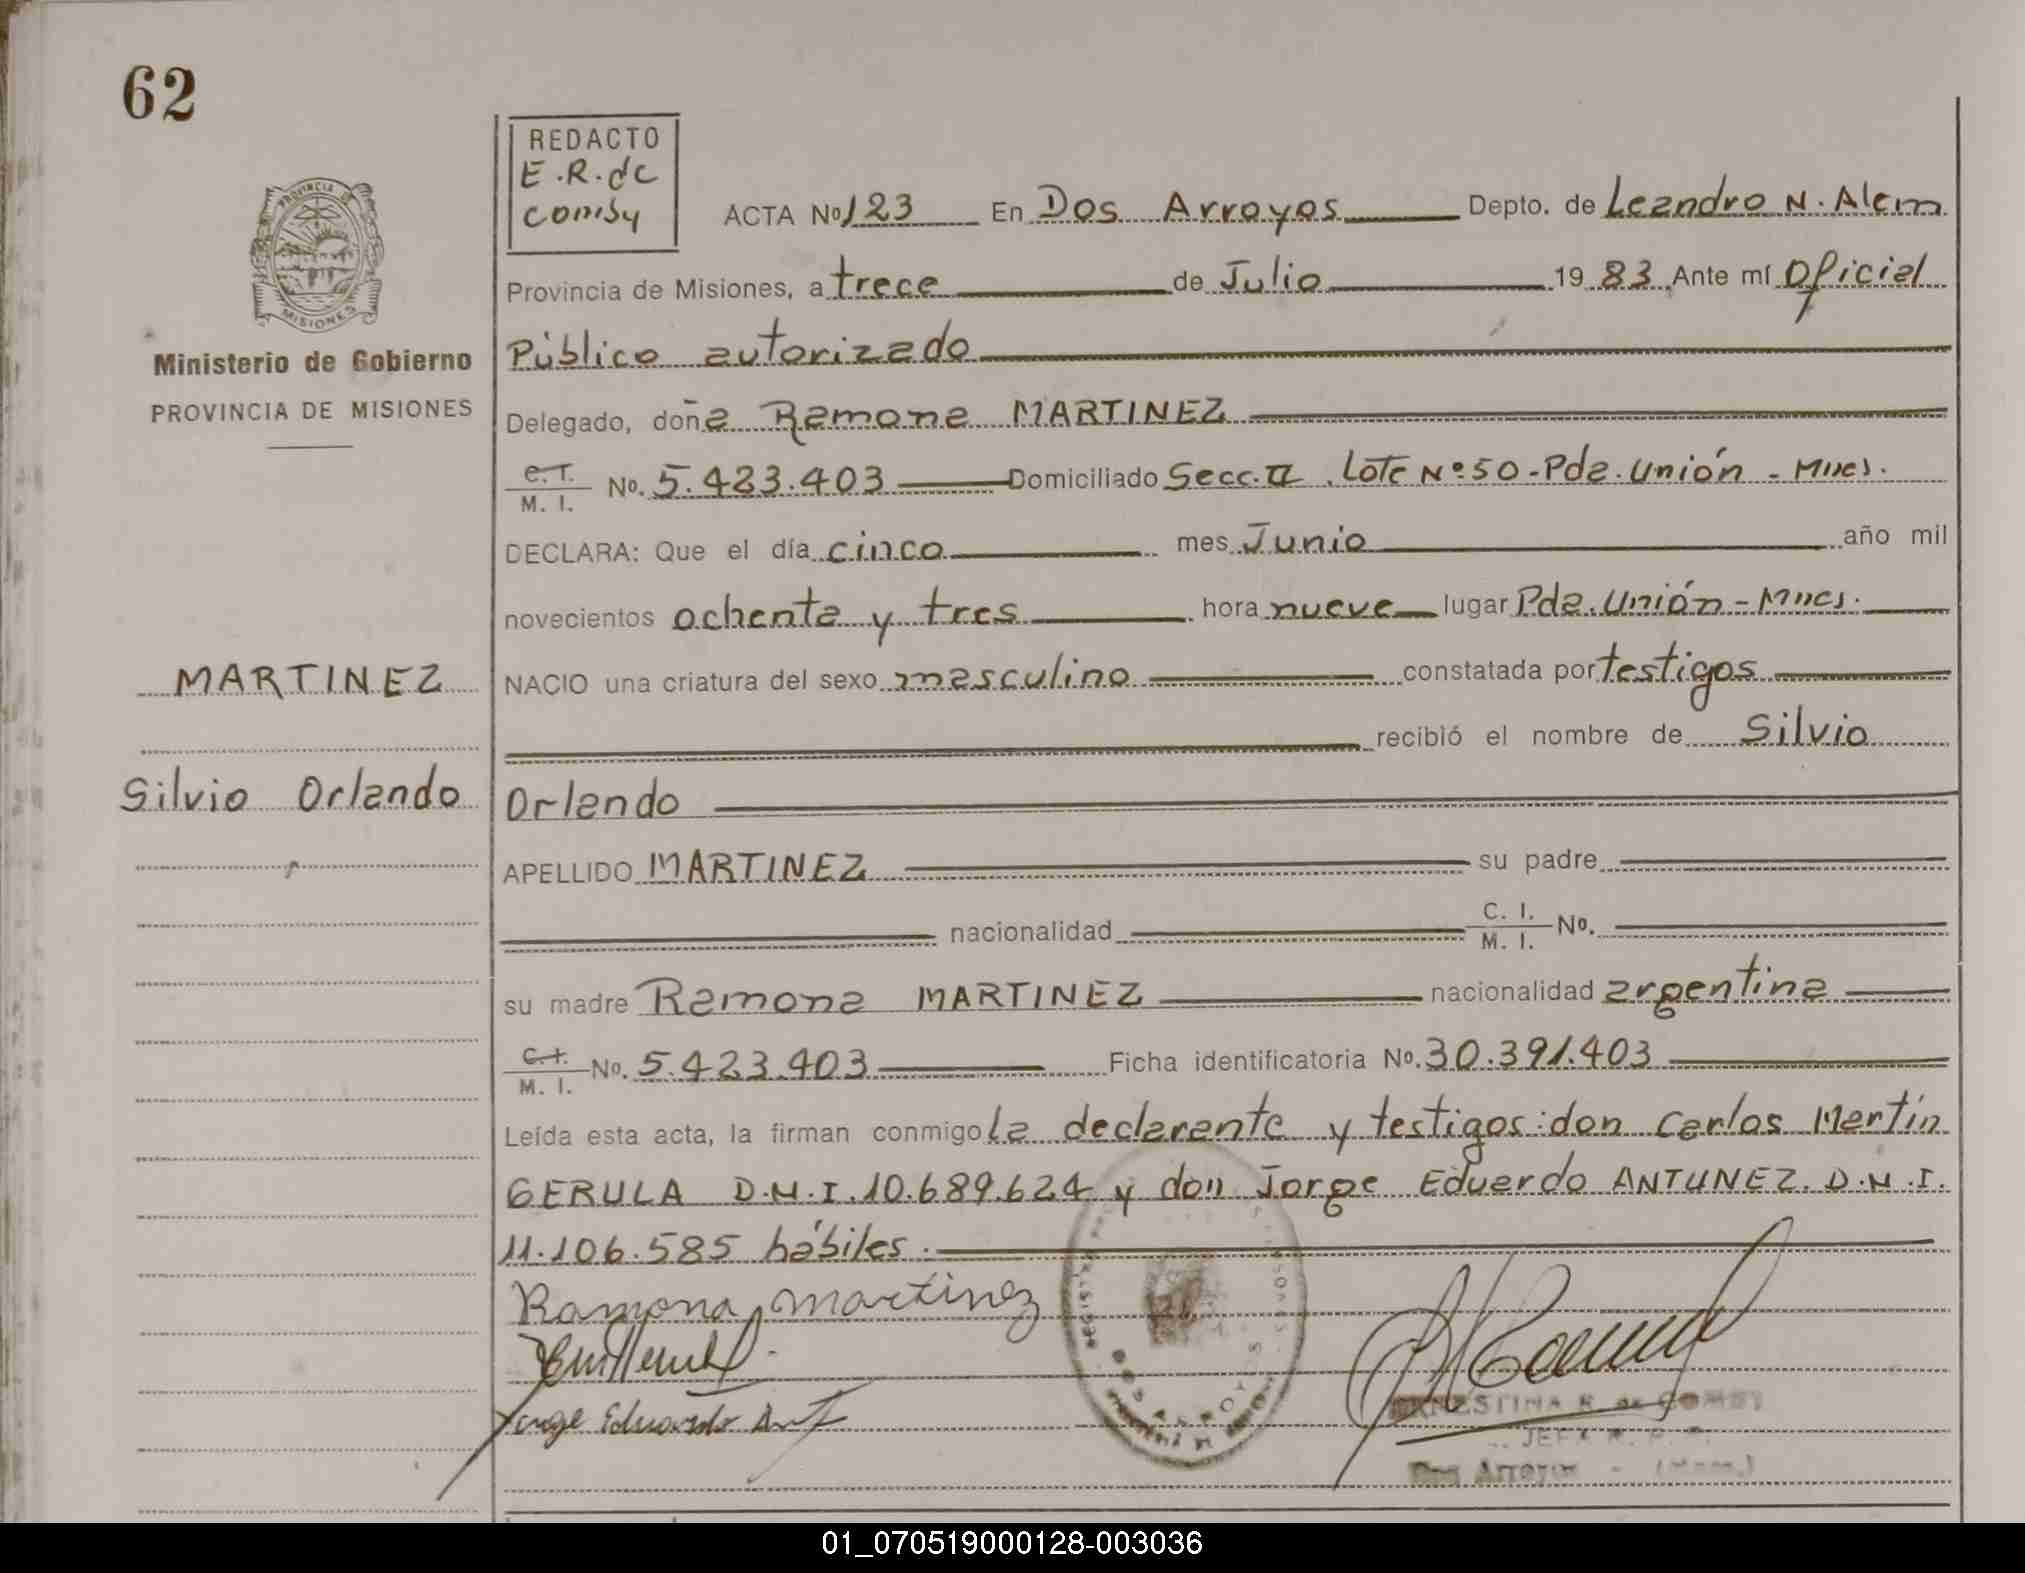 62
REDACTO
E.R. de
Comby
ACTA Nº 123 En Dos Arroyos Depto. de Leandro N. Alem
Provincia de Misiones, a trece de Julio 1983 Ante mí Oficial
Público autorizado
Delegado, doña Ramona MARTINEZ
C.I. M. I. No. 5.423.403 Domiciliado Secc. II. Lote Nº 50 - Pda. Unión - Mnes.
DECLARA: Que el día cinco mes Junio año mil
novecientos ochenta y tres hora nueve lugar Pda. Unión - Mnes.
NACIO una criatura del sexo masculino constatada por testigos
recibió el nombre de Silvio
Orlando
APELLIDO MARTINEZ su padre
nacionalidad C. I. M. I. No.
su madre Ramona MARTINEZ nacionalidad argentina
C.I. M. I. No. 5.423.403 Ficha identificatoria No. 30.391.403
Leída esta acta, la firman conmigo la declarante y testigos: don Carlos Martín
GERULA D.N.I. 10.689.624 y don Jorge Eduardo ANTUNEZ. D.N.I.
11.106.585 hábiles.
Ramona Martinez
Jorge Eduardo Ant
ERNESTINA R. de COMBY
JEFA R. P.
Dos Arroyos - (Mnes.)
PROVINCIA DE
MISIONES
Ministerio de Gobierno
PROVINCIA DE MISIONES
MARTINEZ
Silvio Orlando
01_070519000128-003036